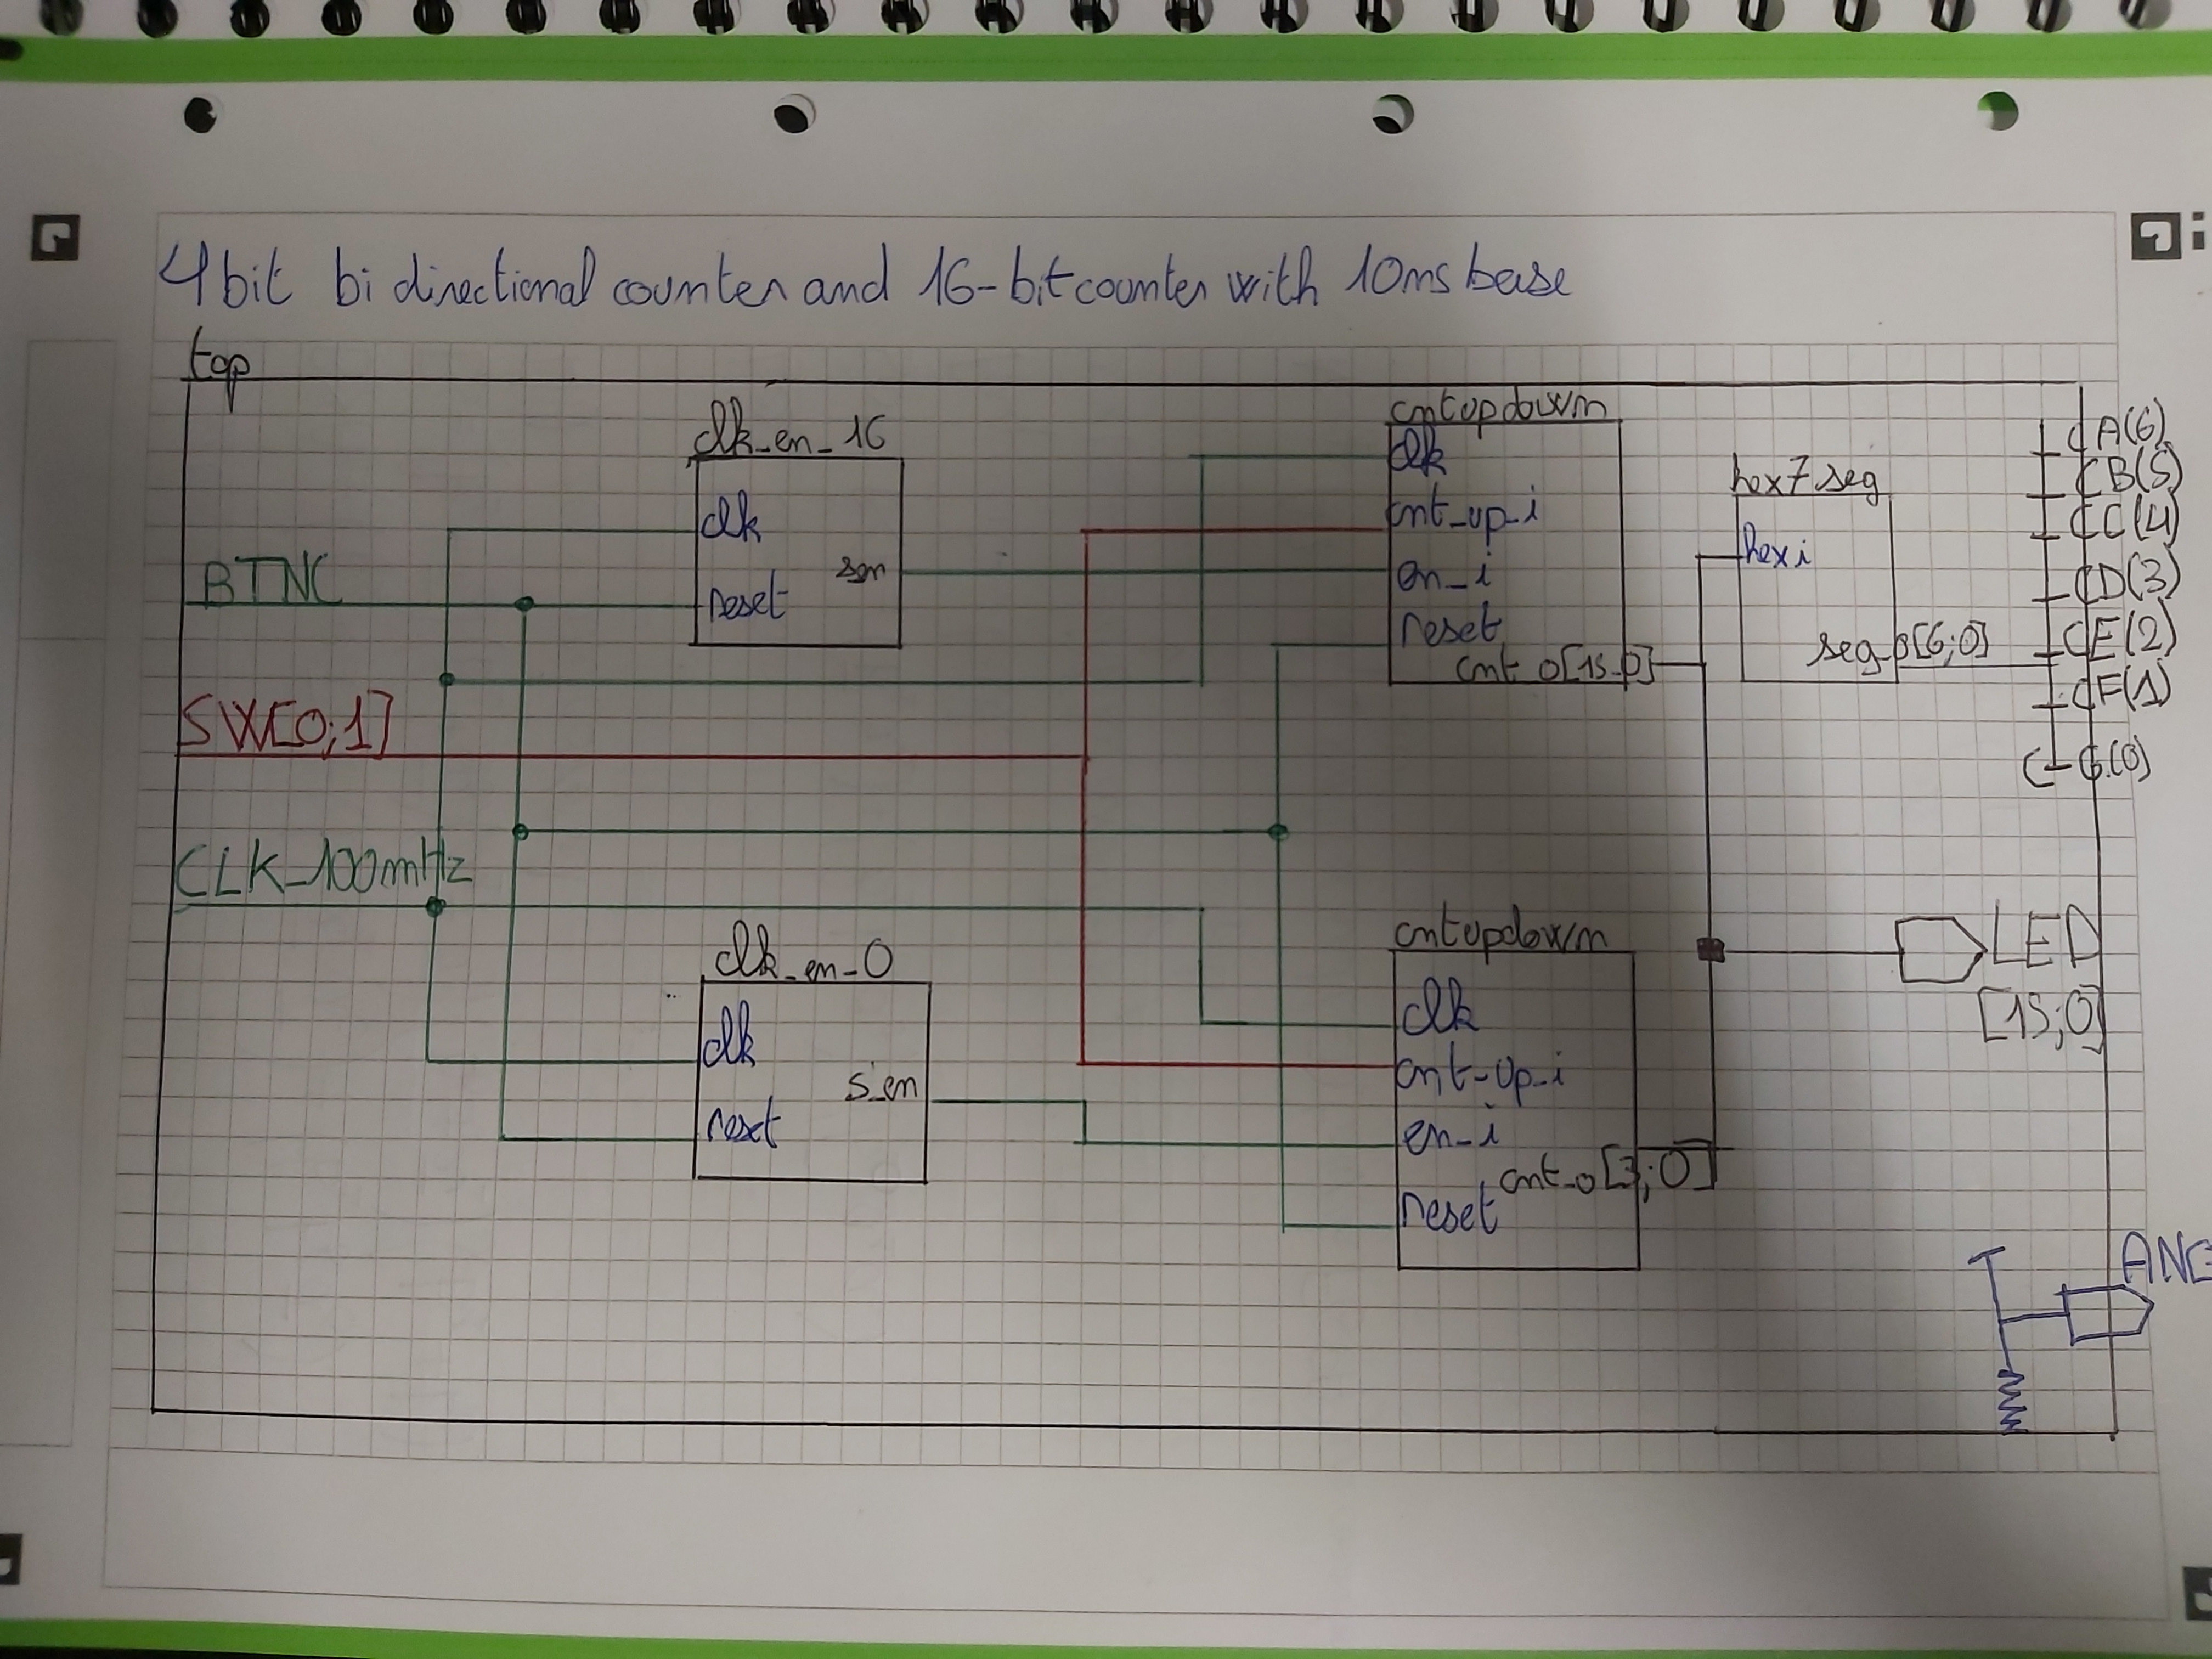 4 bit bi directional counter and 16-bit counter with 10ms base
top
BTNC
SW[0:1]
CLK_100mHz
clk_en_16
clk
reset
clk_en_0
clk
reset
s_en
cntupdown
clk
cnt_up_i
en_i
reset
cnt_o[15:0]
cntupdown
clk
cnt_up_i
en_i
reset
cnt_o[3:0]
hex7seg
hex i
seg_o[6:0]
CA(6)
CB(5)
CC(4)
CD(3)
CE(2)
CF(1)
CG(0)
LED
[15:0]